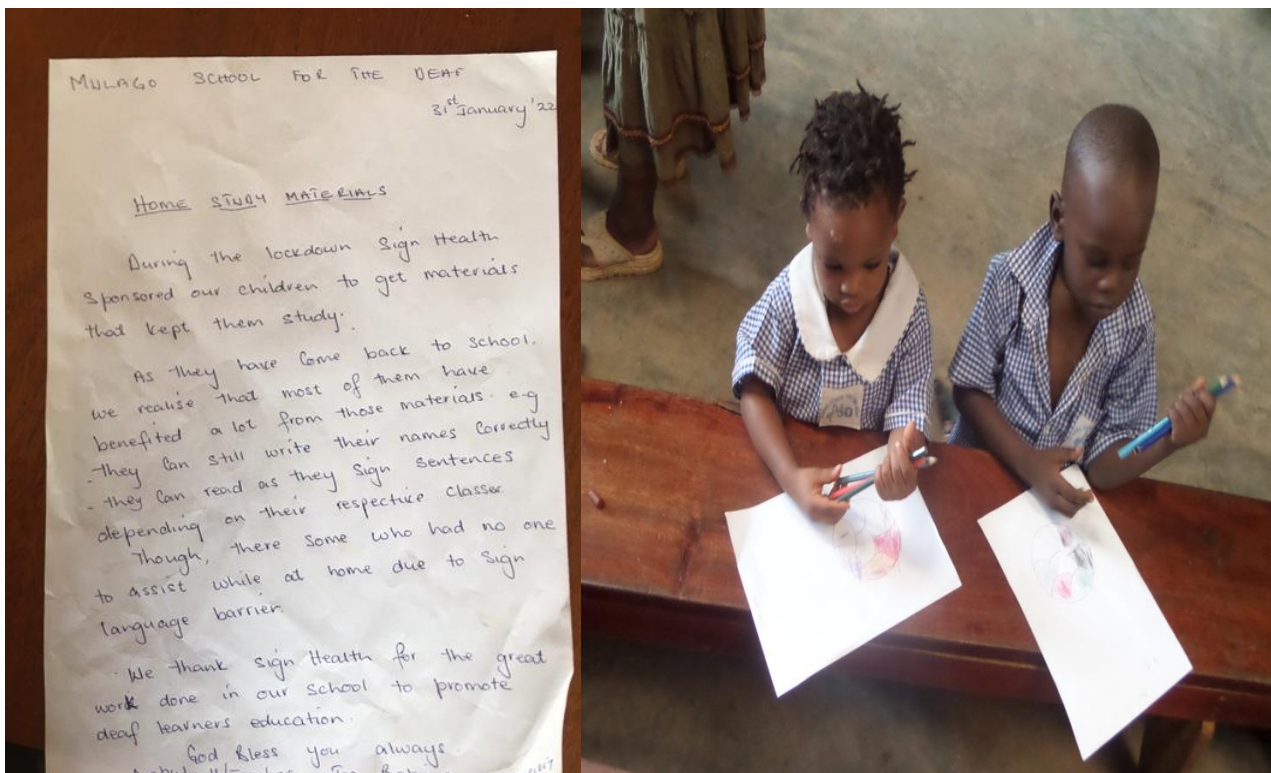 MULAGO SCHOOL FOR THE DEAF
31st January '22
HOME STUDY MATERIALS
During the lockdown Sign Health
sponsored our children to get materials
that kept them study.
As they have come back to school.
we realise that most of them have
benefited a lot from those materials. e.g
- they can still write their names correctly
- they can read as they sign sentences
depending on their respective classes.
Though, there some who had no one
to assist while at home due to sign
language barrier.
We thank Sign Health for the great
work done in our school to promote
deaf learners education.
God Bless you always.